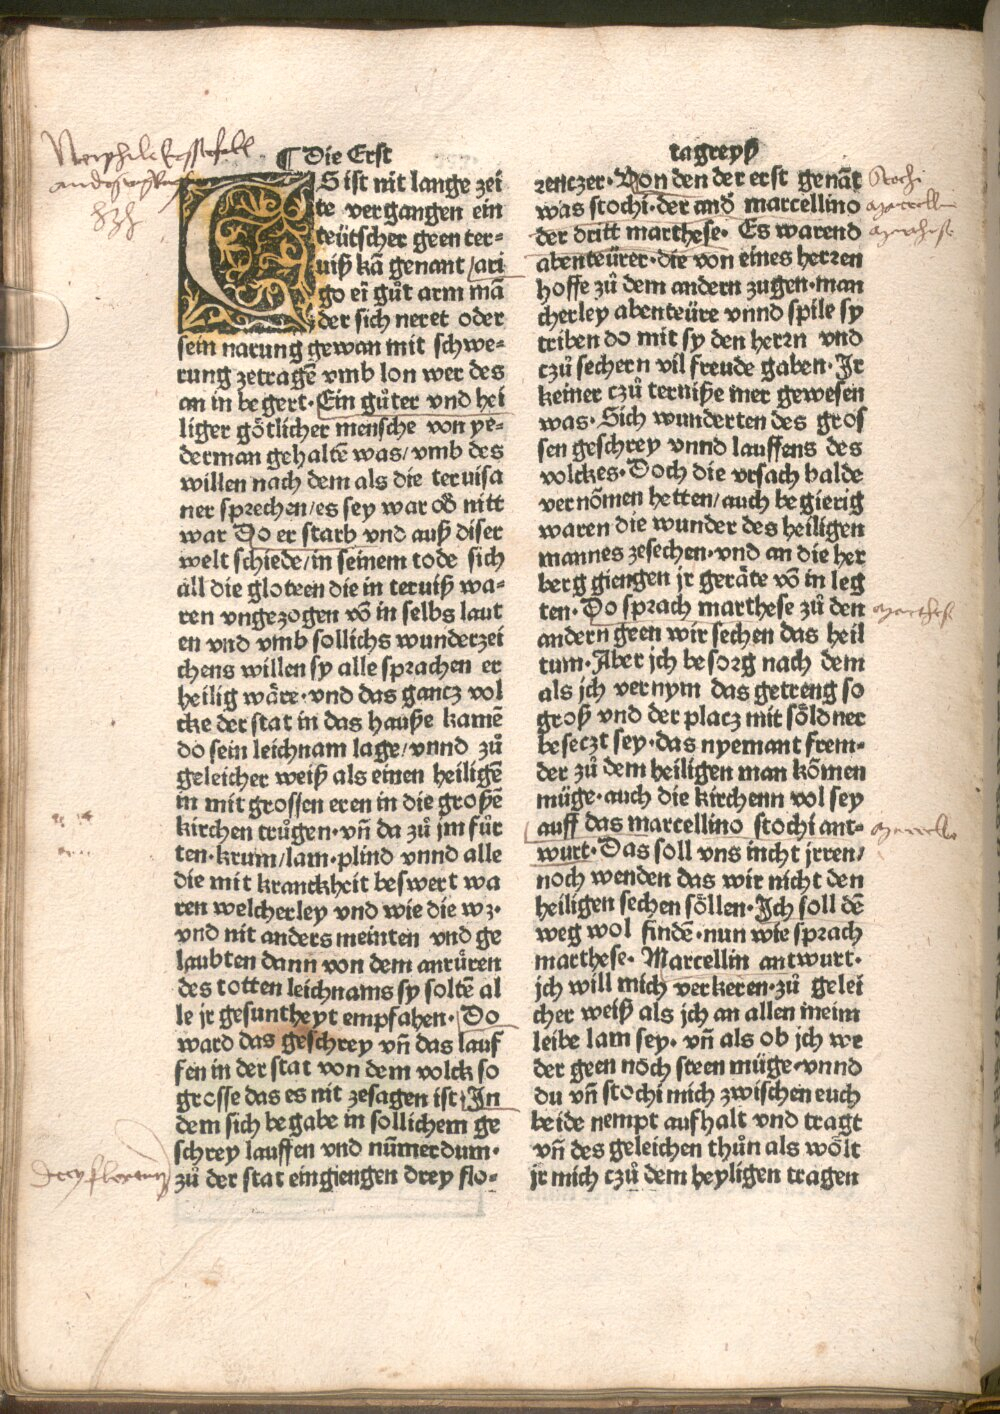 ¶ Die Erst
ES ist nit lange zei
te vergangen ein
teütscher geen ter-
uiß kā genant / ari
go eī gůt arm mā
der sich neret oder
sein narung gewan mit schwe-
rung zetragē vmb lon wer des
an in begert. Ein gůter vnd hei
liger götlicher mensche von ye-
derman gehaltē was / vmb des
willen nach dem als die teruisa
ner sprechen / es sey war od̄ nitt
war Do er starb vnd auß diser
welt schiede / in seinem tode sich
all die gloteen die in teruiß wa-
ren vngezogen vō in selbs laut
en vnd vmb sollichs wunderzei
chens willen sy alle sprachen er
heilig wäre · vnd das gancz vol
cke der stat in das hauße kamē
do sein leichnam lage / vnnd zů
geleicher weiß als einen heiligē
in mit grossen eren in die großē
kirchen trůgen · vñ da zů jm fůr
ten · krum / lam · plind vnnd alle
die mit kranckheit beswert wa
ren welcherley vnd wie die wz ·
vnd nit anders meinten vnd ge
laubten dann von dem anrüren
des totten leichnams sy soltē al
le jr gesuntheyt empfahen · Do
ward das geschrey vñ das lauf
fen in der stat von dem volck so
grosse das es nit zesagen ist · In
dem sich begabe in sollichem ge
schrey lauffen vnd nūmerdum ·
zů der stat eingiengen drey flo-
tagreyß
renczer · Von den der erst genāt
was stochi · der and̄ marcellino
der dritt marthese · Es warend
abenteürer · die von eines herren
hoffe zů dem andern zugen · man
cherley abenteüre vnnd spile sy
triben do mit sy den herrn vnd
czů sechern vil freude gaben · Ir
keiner czů terniße mer gewesen
was · Sich wunderten des gros
sen geschrey vnnd lauffens des
volckes · Doch die vrsach balde
vernōmen hetten / auch begierig
waren die wunder des heiligen
mannes zesechen · vnd an die her
berg giengen jr geräte vō in leg
ten · Do sprach marthese zů den
andern geen wir sechen das heil
tum · Aber jch besorg nach dem
als jch vernym das getreng so
groß vnd der placz mit söldner
beseczt sey · das nyemant frem-
der zů dem heiligen man kōmen
müge · auch die kirchenn vol sey
auff das marcellino stochi ant-
wurt · Das soll vns incht jrren /
noch wenden das wir nicht den
heiligen sechen söllen · Ich soll dē
weg wol findē · nun wie sprach
marthese · Marcellin antwurt ·
jch will mich verkeren · zů gelei
cher weiß als jch an allen meim
leibe lam sey · vñ als ob jch we
der geen noch steen müge · vnnd
du vñ stochi mich zwischen euch
beide nempt aufhalt vnd tragt
vñ des geleichen thůn als wölt
jr mich czů dem heyligen tragen
Stochi
marcellin
marthese
marthese
marcello
drey florentiner